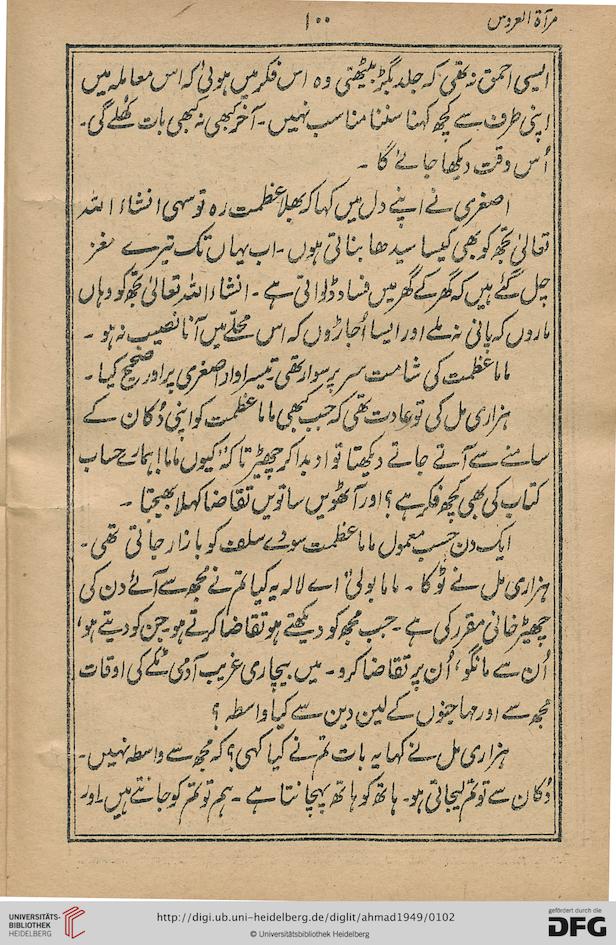 مرآۃ العروس
۱۰۰
ایسی احمق نہ تھی کہ جلد بگڑ بیٹھتی وہ اس فکر میں ہوئی کہ اس معاملہ میں
اپنی طرف سے کچھ کہنا سننا مناسب نہیں۔ آخر کبھی نہ کبھی بات کھلے گی۔
اُس وقت دیکھا جائے گا ۔
اصغری نے اپنے دل میں کہا کہ بھلا عظمت رہ تو سہی انشاء اللہ
تعالیٰ تجھ کو بھی کیسا سیدھا بناتی ہوں۔ اب یہاں تک تیرے مغز
چل گئے ہیں کہ گھر کے گھر میں فساد ڈلواتی ہے۔ انشاء اللہ تعالیٰ تجھ کو وہاں
ماروں کہ پانی نہ ملے اور ایسا اُجاڑوں کہ اس محلّے میں آنا نصیب نہ ہو ۔
ماما عظمت کی شامت سر پر سوار تھی۔ تیسرا وار اصغری پر اور صحیح کیا۔
ہزاری مل کی تو عادت تھی کہ جب کبھی ماما عظمت کو اپنی دُکان کے
سامنے سے آتے جاتے دیکھتا تو ادبدا کر چھیڑتا کہ ”کیوں ماما! ہمارے حساب
کتاب کی بھی کچھ فکر ہے؟ اور آٹھویں ساتویں تقاضا کہلا بھیجتا ۔
ایک دن حسب معمول ماما عظمت سودے سلف کو بازار جاتی تھی۔
ہزاری مل نے ٹوکا ۔ ماما بولی ”اے لالہ یہ کیا تم نے مجھ سے آئے دن کی
چھیڑ خانی مقرر کی ہے۔ جب مجھ کو دیکھتے ہو تقاضا کرتے ہو۔ جن کو دیتے ہو‘
اُن سے مانگو‘ اُن پر تقاضا کرو۔ میں بیچاری غریب آدمی ٹکے کی اوقات
مجھ سے اور مہاجنوں کے لین دین سے کیا واسطہ ؟
ہزاری مل نے کہا یہ بات تم نے کیا کہی؟ کہ مجھ سے واسطہ نہیں۔
دُکان سے تو تم لیجاتی ہو۔ ہاتھ کو ہاتھ پہچانتا ہے۔ ہم تو تم کو جانتے ہیں۔ اور
UNIVERSITÄTS-
BIBLIOTHEK
HEIDELBERG
http://digi.ub.uni-heidelberg.de/diglit/ahmad1949/0102
© Universitätsbibliothek Heidelberg
gefördert durch die
DFG